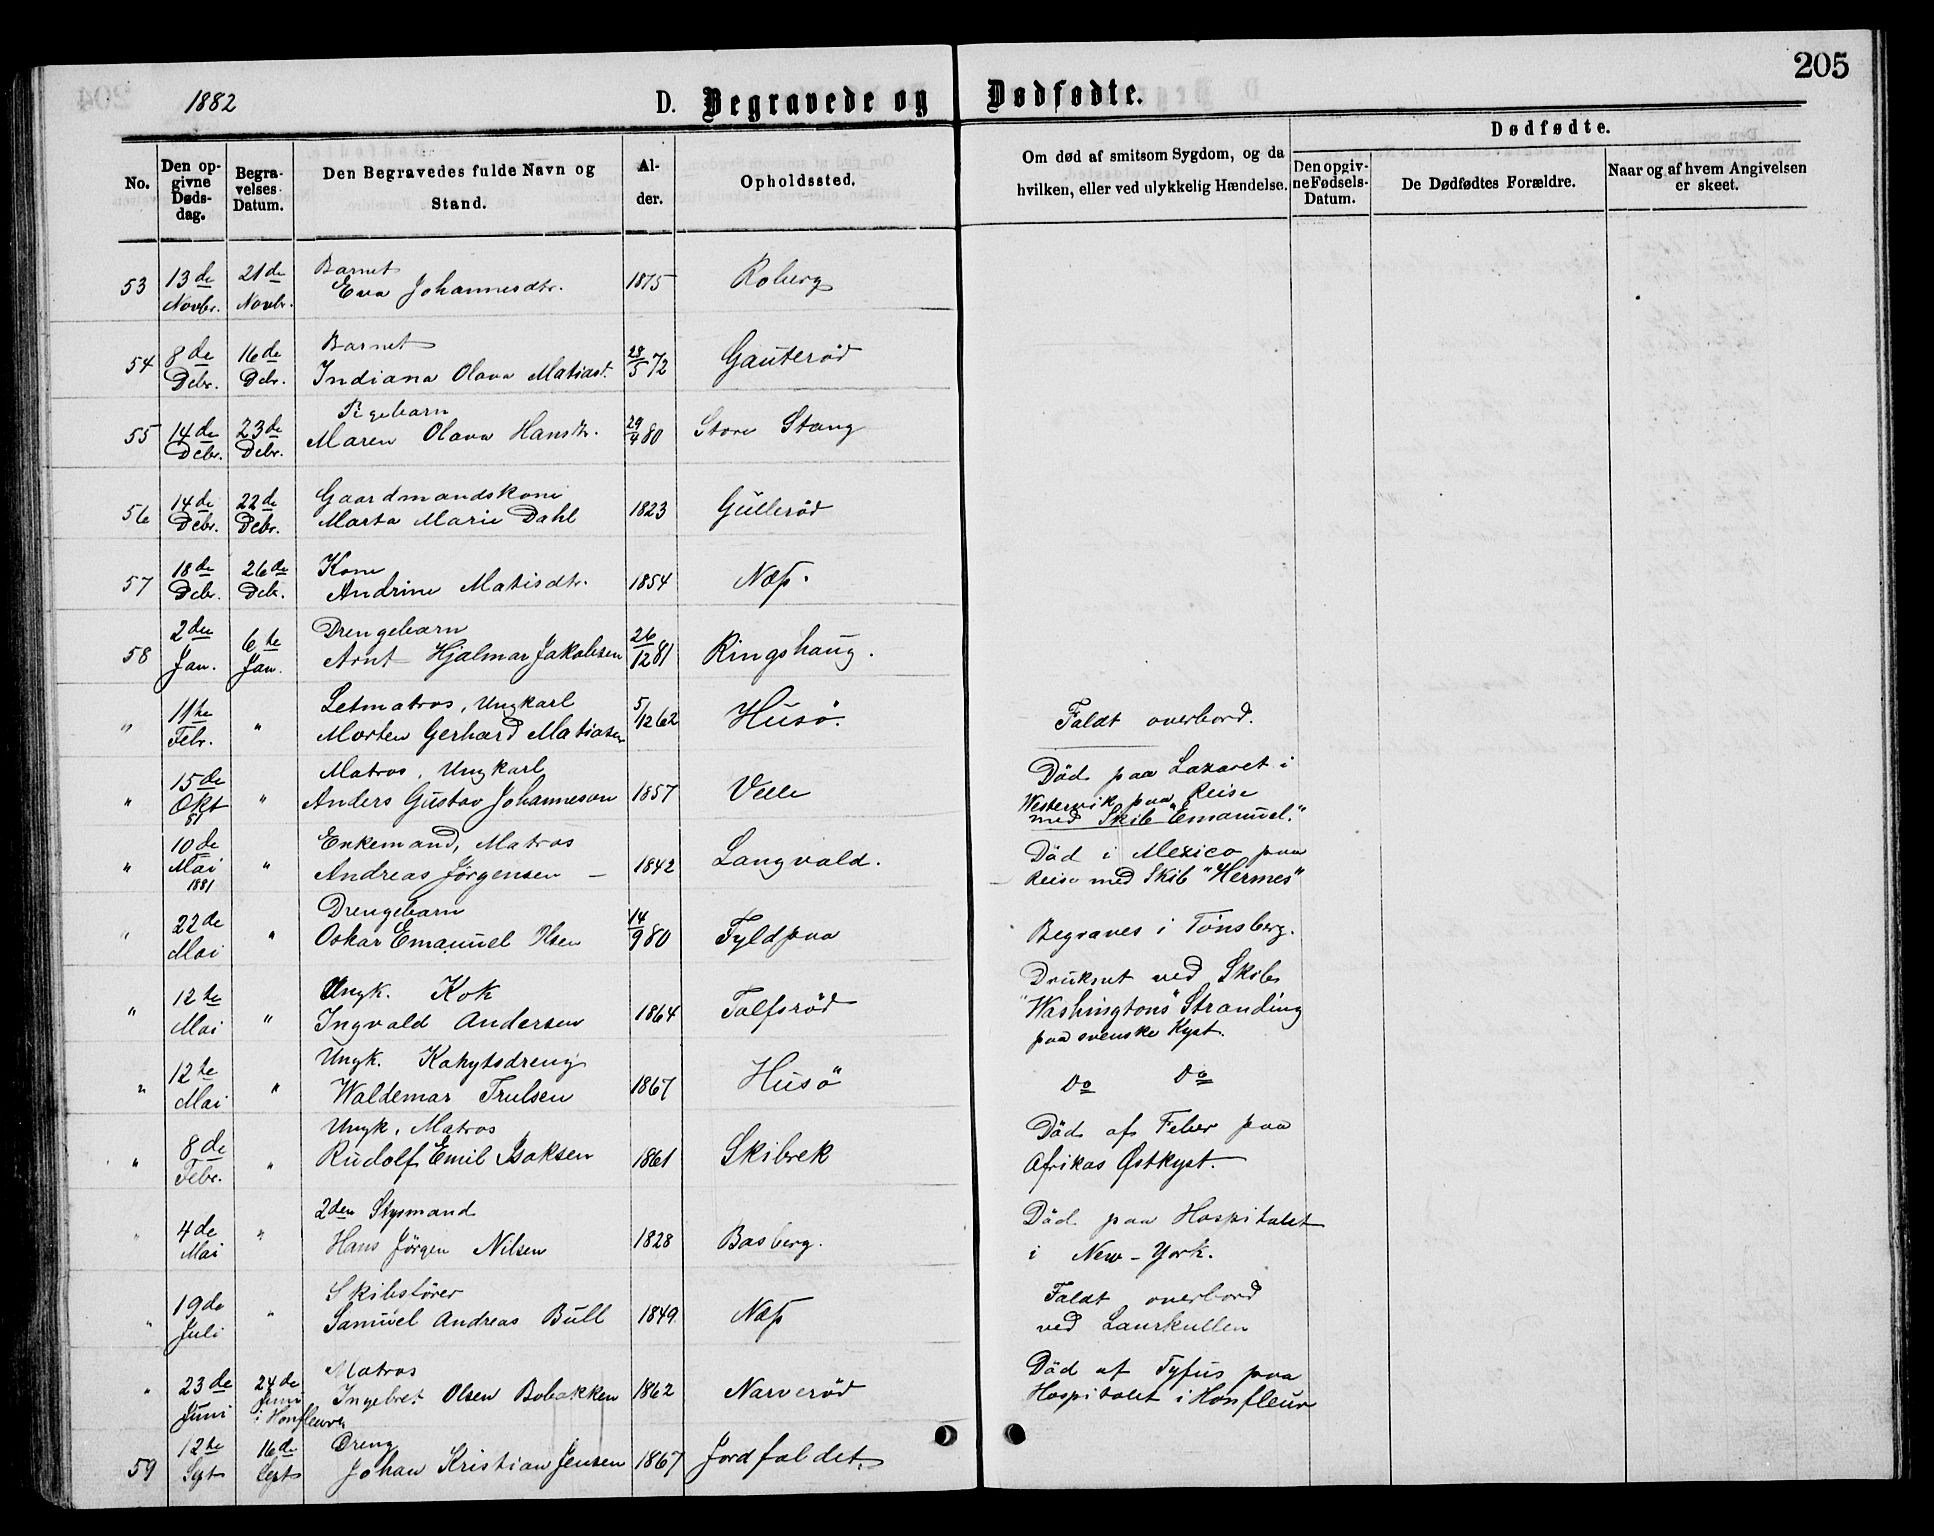 205
1882
D. Begravede og Dødfødte.
No.
Den opgivne Dødsdag.
Begravelses Datum.
Den Begravedes fulde Navn og Stand.
Alder.
Opholdssted.
Om død af smitsom Sygdom, og da hvilken, eller ved ulykkelig Hændelse.
Dødfødte.
Den opgivne Fødsels-Datum.
De Dødfødtes Forældre.
Naar og af hvem Angivelsen er skeet.
53 13de Novbr. 21de Novbr. Barnet
Eva Johannesdtr. 1875 Roberg
54 8de Debr. 16de Debr. Barnet
Indiana Olava Matiasd. 28/5 72 Gauterød
55 14de Debr. 23de Debr. Pigebarn
Maren Olava Hansdtr. 29/4 80 Store Stang
56 14de Debr. 22de Debr. Gaardmandskone
Marta Marie Dahl 1823 Gullerød
57 18de Debr. 26de Debr. Kone
Andrine Matisdtr. 1854 Næss.
58 2den Jan. 6te Jan. Drengebarn
Arnt Hjalmar Jakobsen 26/12 81 Ringshaug.
" 11te Febr. " Letmatros, Ungkarl
Morten Gerhard Matiasen 5/12 62 Husö. Faldt overbord.
" 15de Okt 81 " Matros, Ungkarl
Anders Gustav Johanneson 1857 Velle Död paa Lazaret i
Westervik paa Reise
med Skib "Emanuel."
" 10de Mai 1881 " Enkemand, Matros
Andreas Jörgensen 1842 Langvald. Död i Mexico paa
Reise med Skib "Hermes"
" 22de Mai " Drengebarn
Oskar Emanuel Olsen 14/9 80 Fyldpaa Begraves i Tönsberg.
" 12te Mai " Ungk. Kok
Ingvald Andersen 1864 Tolfsrød Druknet ved Skibs
"Washingtons" Stranding
paa svenske Kyst.
" 12te Mai " Ungk. Kahytsdreng
Waldemar Trulsen 1867 Husö Do Do
" 8de Febr. " Ungk. Matros
Rudolf Emil Isaksen 1861 Skibrek Död af Feber paa
Afrikas Østkyst.
" 4de Mai " 2den Stysmand
Hans Jörgen Nilsen 1828 Basberg. Död paa Hospitalet
i New-York.
" 19de Juli " Skibsförer
Samuel Andreas Bull 1849. Næss Faldt overbord
ved Laurkullen
" 23de Juni 24de Juni i Honfleure Matros
Ingebret Olsen Bobakken 1862 Narverød Död af Tyfus paa
Hospitalet i Honfleur
59 12te Sept 16de Sept Dreng
Johan Kristian Jensen 1867 Jordfaldet.